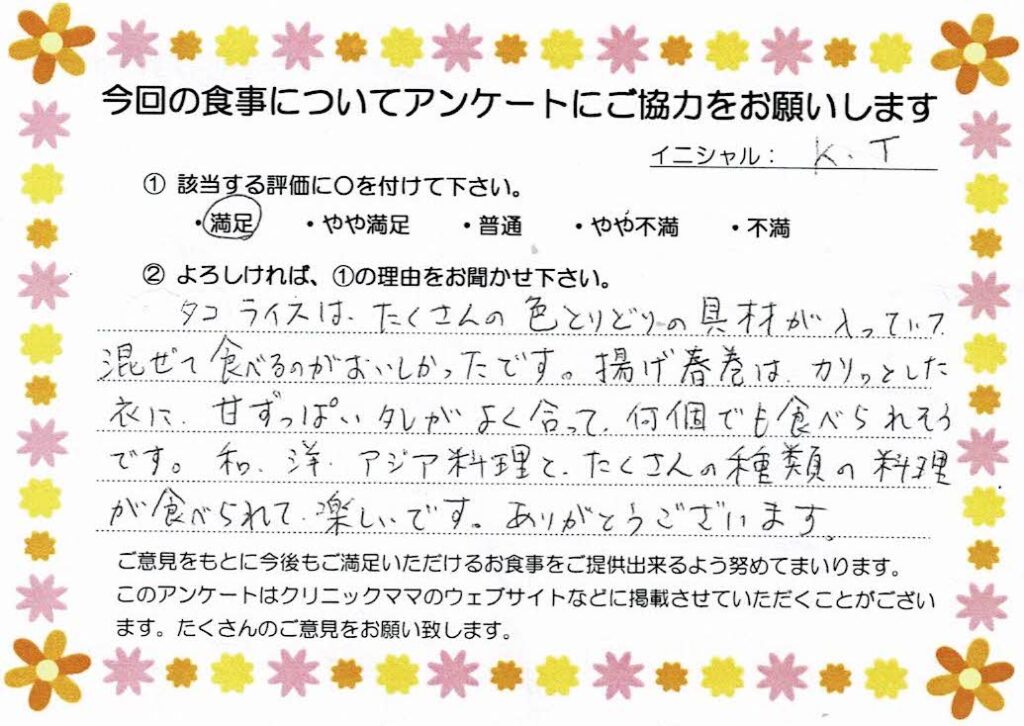 今回の食事についてアンケートにご協力をお願いします
イニシャル: K.T
① 該当する評価に〇を付けて下さい。
・満足 ・やや満足 ・普通 ・やや不満 ・不満
② よろしければ、①の理由をお聞かせ下さい。
タコライスは、たくさんの色とりどりの具材が入っていて、
混ぜて食べるのがおいしかったです。揚げ春巻は、カリッとした
衣に、甘ずっぱいタレがよく合って、何個でも食べられそう
です。和、洋、アジア料理と、たくさんの種類の料理
が食べられて、楽しいです。ありがとうございます。
ご意見をもとに今後もご満足いただけるお食事をご提供出来るよう努めてまいります。
このアンケートはクリニックママのウェブサイトなどに掲載させていただくことがござい
ます。たくさんのご意見をお願い致します。